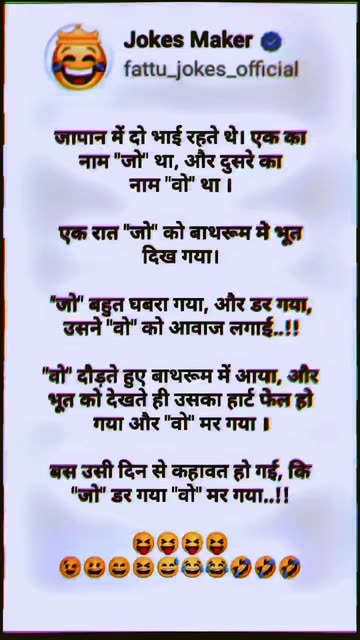 Jokes Maker
fattu_jokes_official
जापान में दो भाई रहते थे। एक का
नाम "जो" था, और दुसरे का
नाम "वो" था ।
एक रात "जो" को बाथरूम में भूत
दिख गया।
"जो" बहुत घबरा गया, और डर गया,
उसने "वो" को आवाज लगाई..!!
"वो" दौड़ते हुए बाथरूम में आया, और
भूत को देखते ही उसका हार्ट फेल हो
गया और "वो" मर गया ।
बस उसी दिन से कहावत हो गई, कि
"जो" डर गया "वो" मर गया..!!